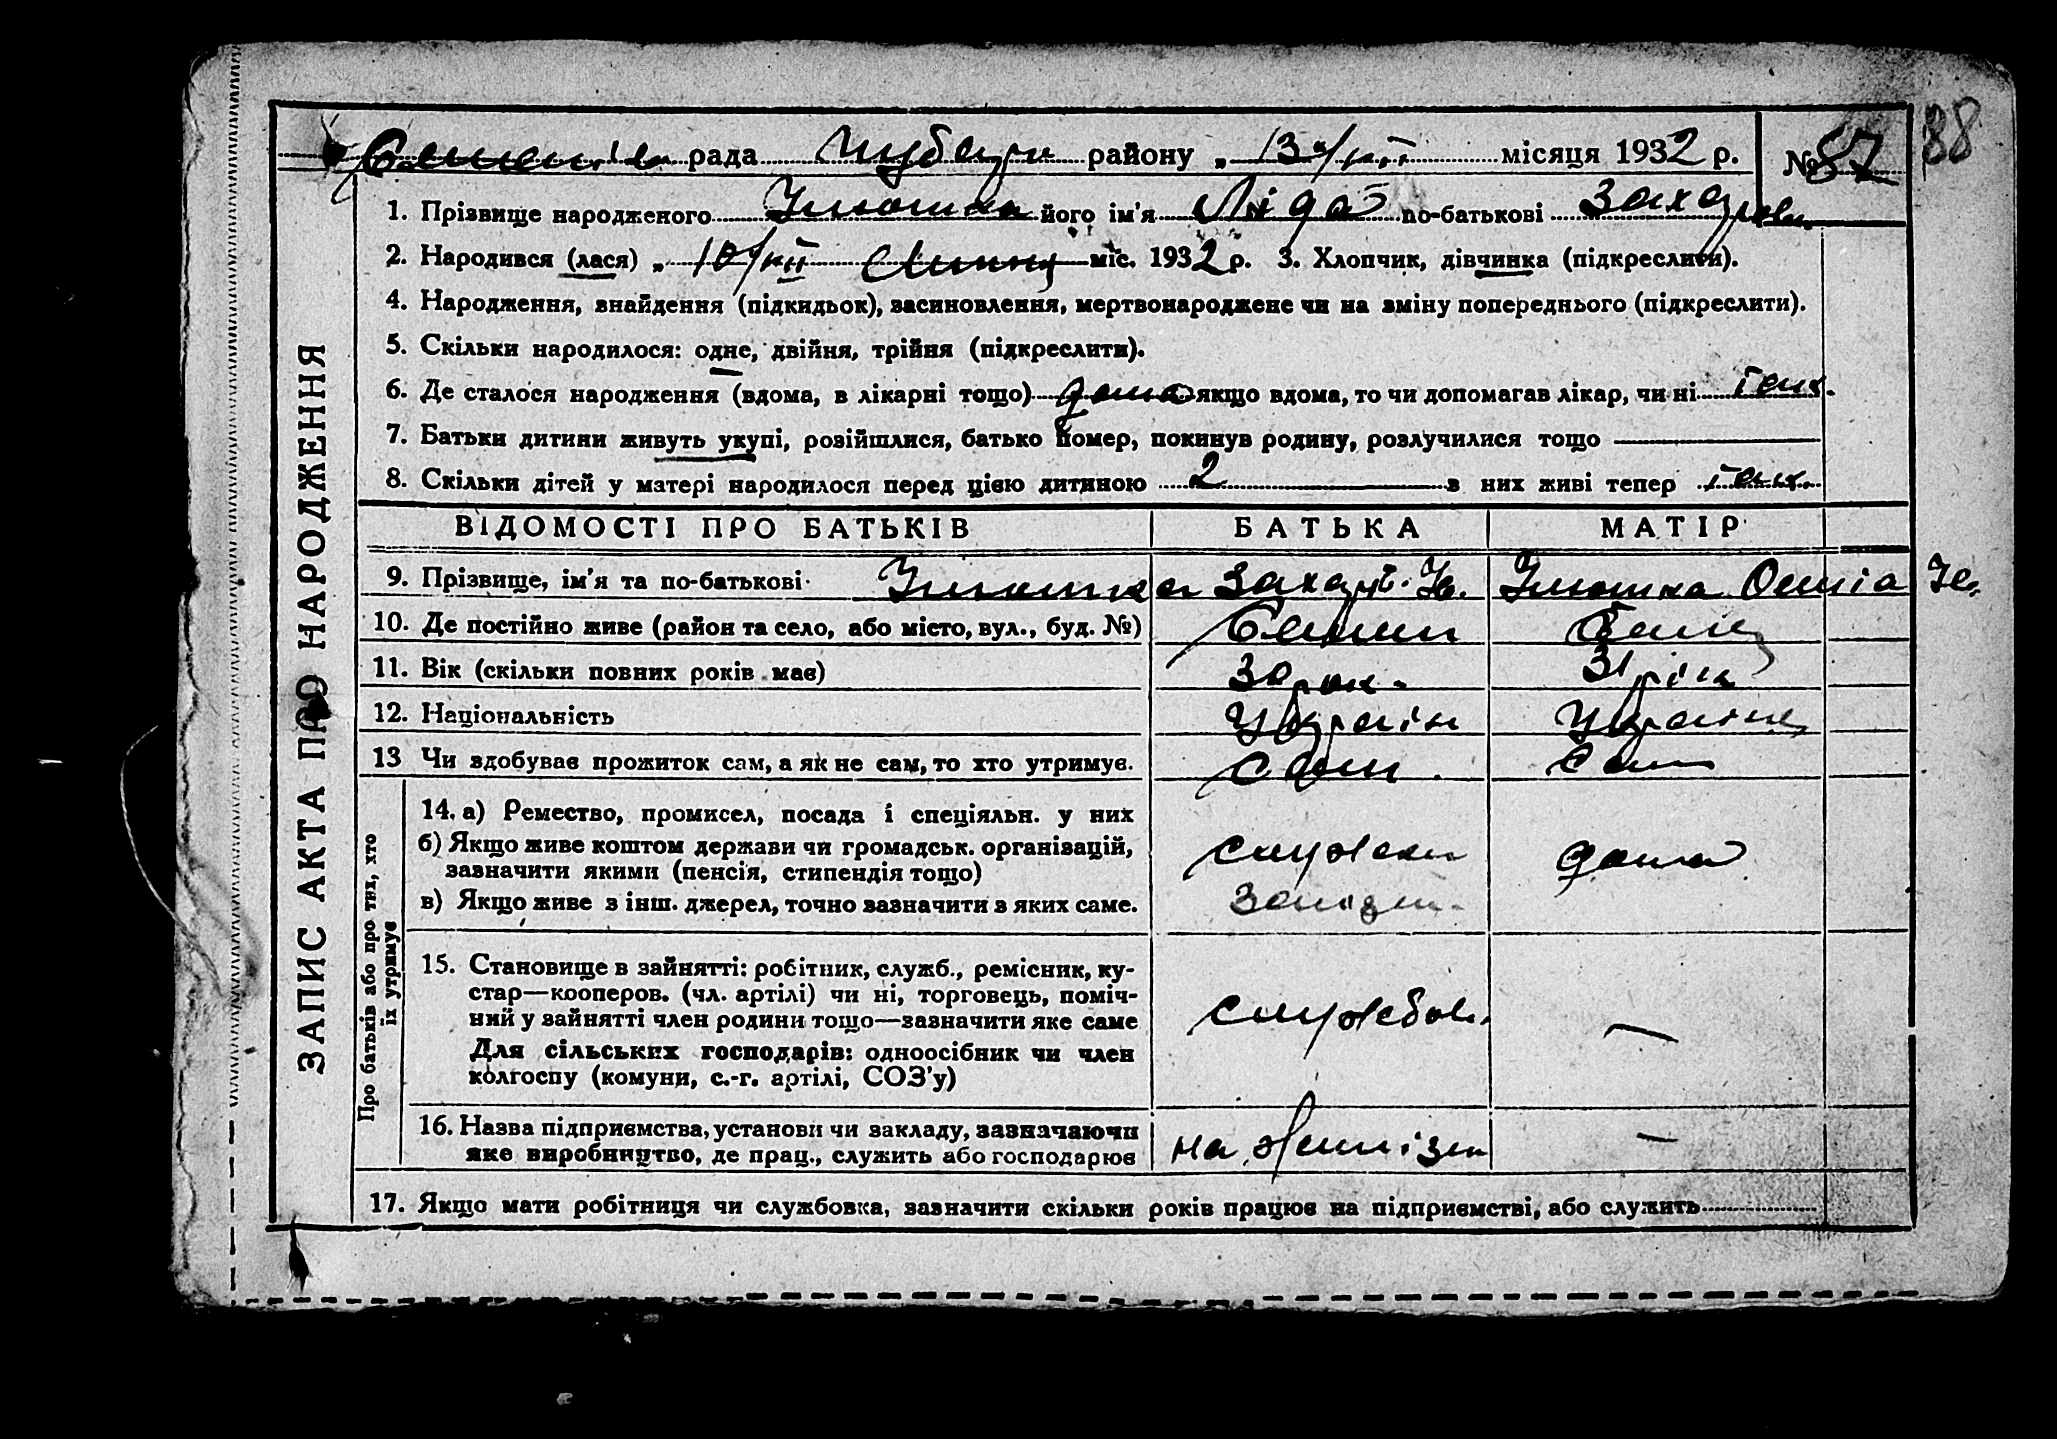 рада Чубар району „ 13/VII місяця 1932 р. № 87 88
1. Прізвище народженого його ім'я Ліда по-батькові Захарівн.
2. Народився (лася) „ 10/VII Липня міс. 1932 р. 3. Хлопчик, дівчинка (підкреслити).
4. Народження, знайдення (підкидьок), засиновлення, мертвонароджене чи на зміну попереднього (підкреслити).
5. Скільки народилося: одне, двійня, трійня (підкреслити).
6. Де сталося народження (вдома, в лікарні тощо) дома якщо вдома, то чи допомагав лікар, чи ні
7. Батьки дитини живуть укупі, розійшлися, батько помер, покинув родину, розлучилися тощо
8. Скільки дітей у матері народилося перед цією дитиною 2 з них живі тепер
ВІДОМОСТІ ПРО БАТЬКІВ БАТЬКА МАТІР
9. Прізвище, ім'я та по-батькові Захар
10. Де постійно живе (район та село, або місто, вул., буд. №)
11. Вік (скільки повних років має) 30 рок. 31 рік
12. Національність Україн Україн
13 Чи здобуває прожиток сам, а як не сам, то хто утримує. сам сам
Про батьків або про тих, хто їх утримує
14. а) Ремество, промисел, посада і спеціяльн. у них
б) Якщо живе коштом держави чи громадськ. організацій,
зазначити якими (пенсія, стипендія тощо) дома
в) Якщо живе з інш. джерел, точно зазначити з яких саме.
15. Становище в зайнятті: робітник, служб., ремісник, ку-
стар—кооперов. (чл. артілі) чи ні, торговець, поміч-
ний у зайнятті член родини тощо—зазначити яке саме службов. —
Для сільських господарів: одноосібник чи член
колгоспу (комуни, с.-г. артілі, СОЗ'у)
16. Назва підприємства, установи чи закладу, зазначаючи
яке виробництво, де прац., служить або господарює на —
17. Якщо мати робітниця чи службовка, зазначити скільки років працює на підприємстві, або служить
ЗАПИС АКТА ПРО НАРОДЖЕННЯ